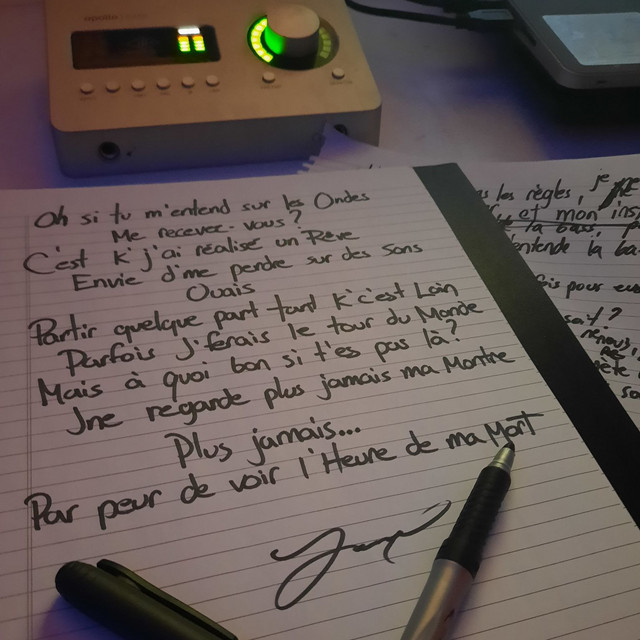 Oh si tu m'entend sur les Ondes
Me recevez-vous?
C'est K j'ai réalisé un Rêve
Envie d'me perdre sur des Sons
Ouais
Partir quelque part tant K c'est Loin
Parfois j'ferais le tour du Monde
Mais à quoi bon si t'es pas là?
Jne regarde plus jamais ma Montre
Plus jamais...
Par peur de voir l'Heure de ma Mort
les règles, je
et mon